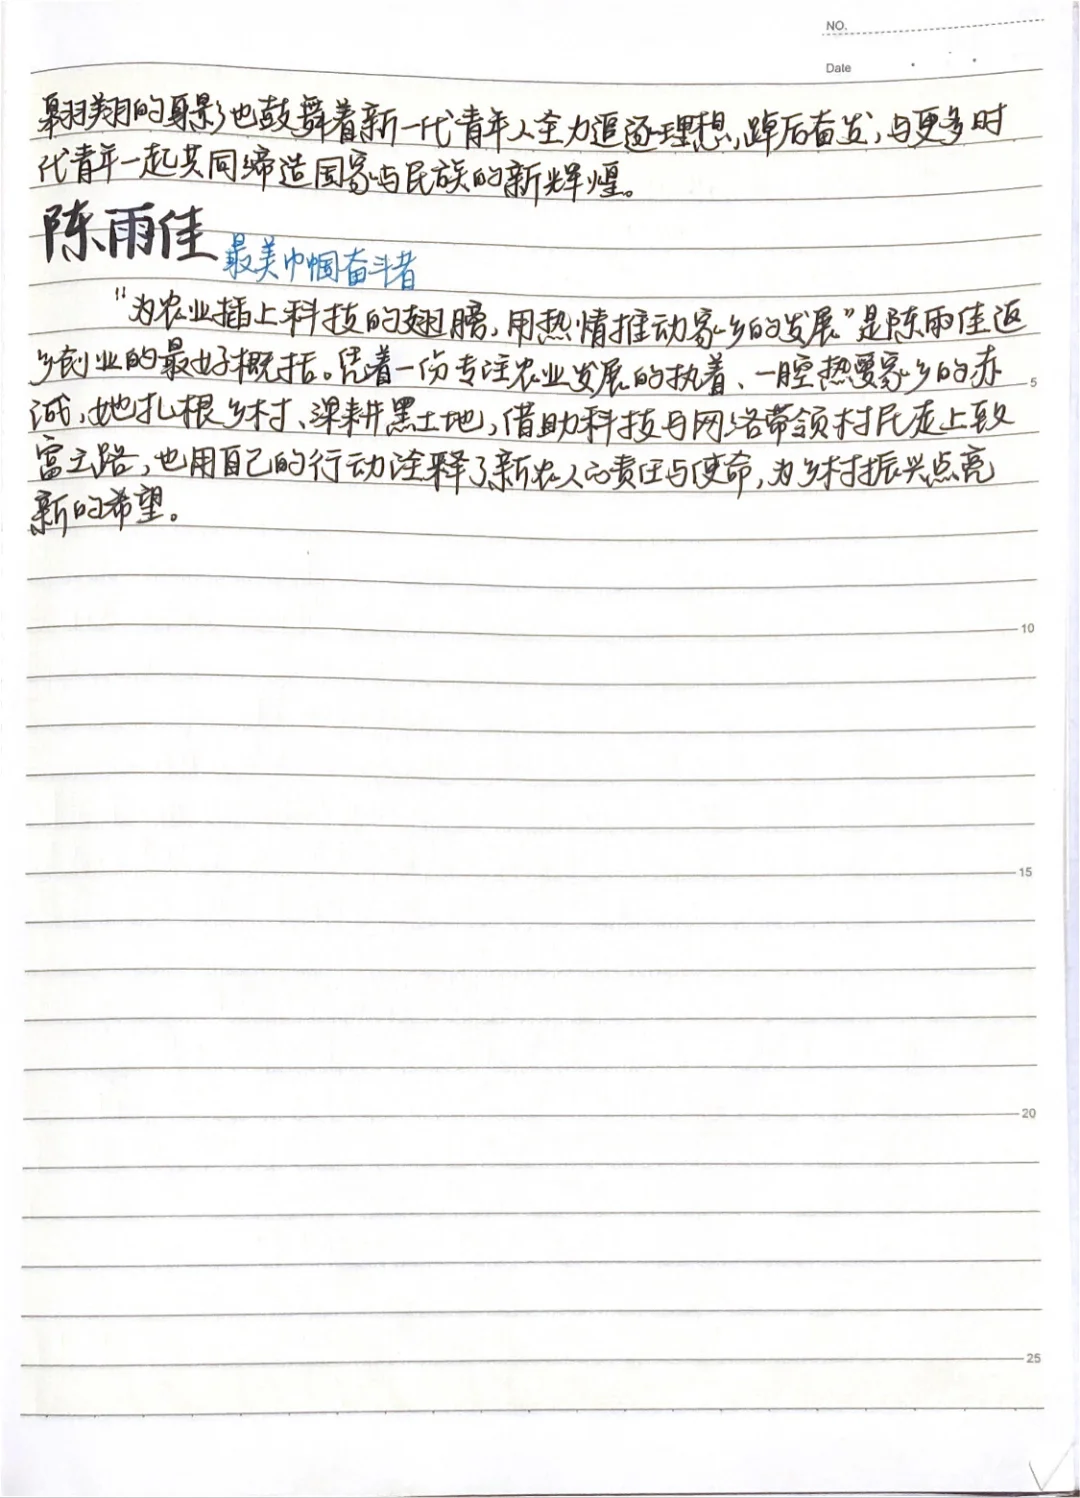 NO.
Date
翱翔的身影也鼓舞着新一代青年人全力追逐理想,踔厉奋发,与更多时
代青年一起共同缔造国家与民族的新辉煌。
陈雨佳 最美巾帼奋斗者
“为农业插上科技的翅膀,用热情推动家乡的发展”是陈雨佳返
乡创业的最好概括。凭着一份专注农业发展的执着、一腔热爱家乡的赤
诚,她扎根乡村、深耕黑土地,借助科技与网络带领村民走上致
富之路,也用自己的行动诠释了新农人的责任与使命,为乡村振兴点亮
新的希望。
5
10
15
20
25